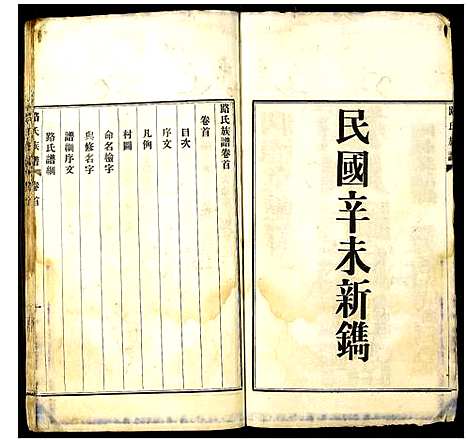 民國辛未新鐫
路氏族譜卷首
卷首
目次
序文
凡例
村圖
命名檢字
與修名字
譜綱序文
路氏譜綱
路氏族譜 卷首 一